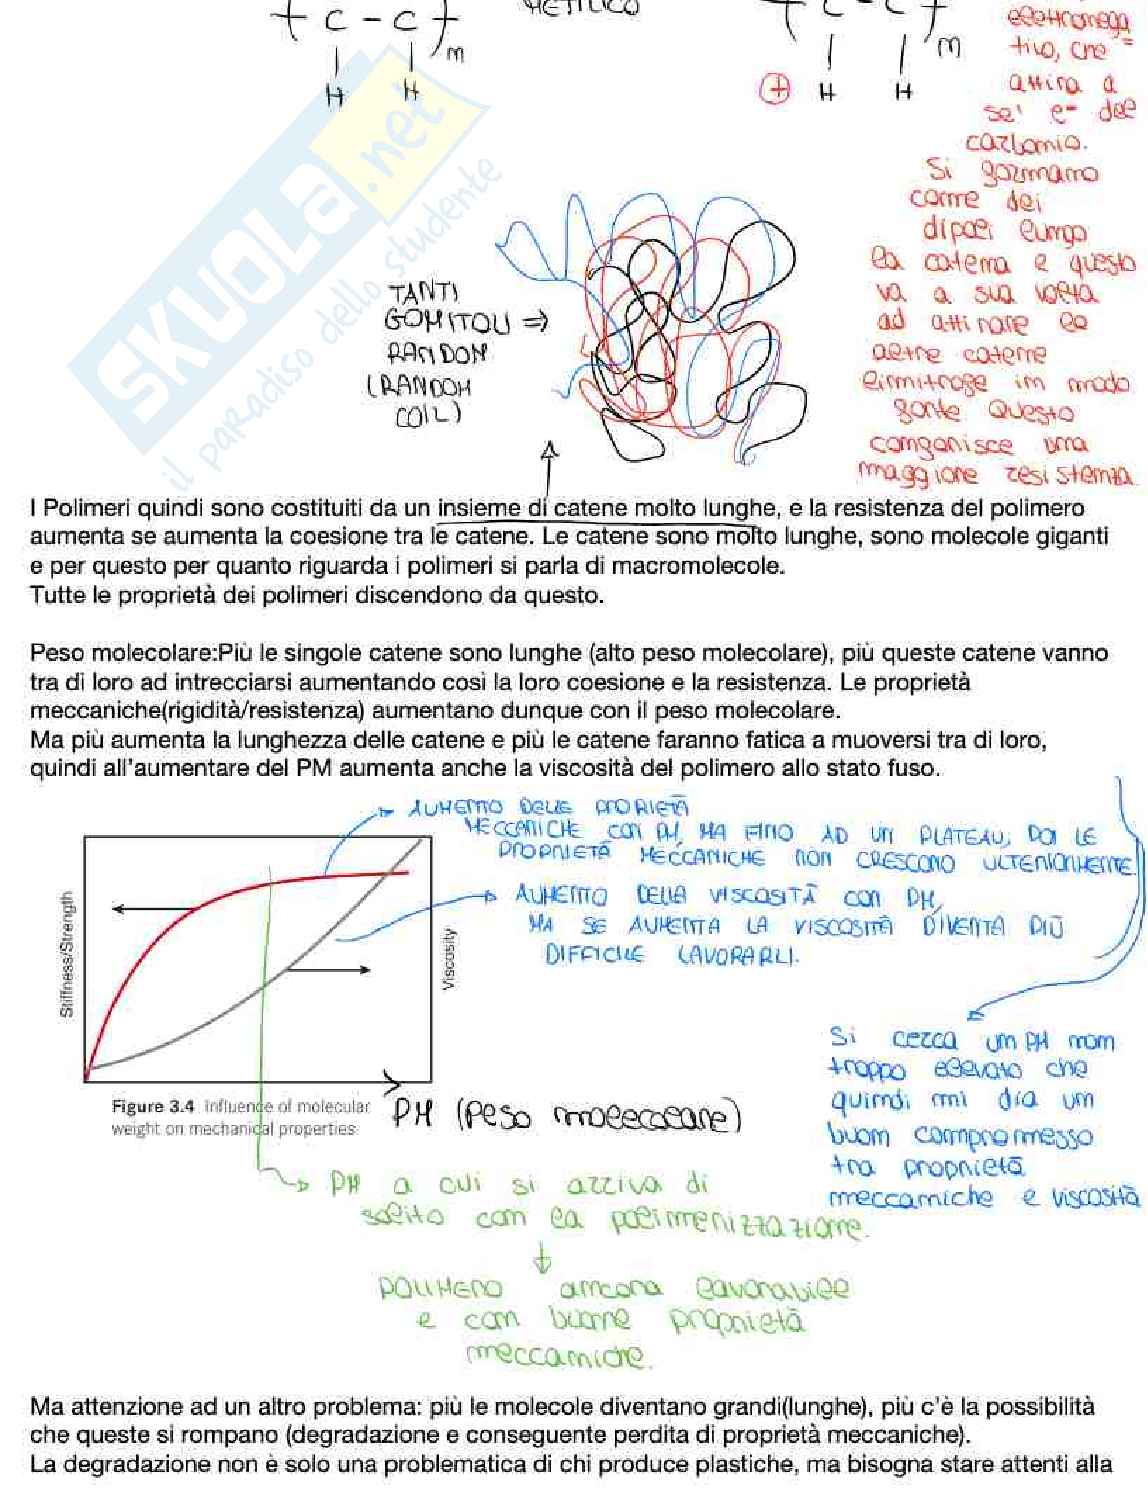 METILICO
C - C
m
H H
C - C
m
+ H H
elettronega
tivo, che
attira a
se' e- del
carbonio.
Si formano
come dei
dipoli lungo
la catena e questo
va a sua volta
ad attirare le
altre catene
limitrofe in modo
forte Questo
conferisce una
maggiore resistenza
TANTI
GOMITOLI ⇒
RANDOM
(RANDOM
COIL)
SKUOLA.net
il paradiso dello studente
I Polimeri quindi sono costituiti da un insieme di catene molto lunghe, e la resistenza del polimero
aumenta se aumenta la coesione tra le catene. Le catene sono molto lunghe, sono molecole giganti
e per questo per quanto riguarda i polimeri si parla di macromolecole.
Tutte le proprietà dei polimeri discendono da questo.
Peso molecolare:Più le singole catene sono lunghe (alto peso molecolare), più queste catene vanno
tra di loro ad intrecciarsi aumentando così la loro coesione e la resistenza. Le proprietà
meccaniche(rigidità/resistenza) aumentano dunque con il peso molecolare.
Ma più aumenta la lunghezza delle catene e più le catene faranno fatica a muoversi tra di loro,
quindi all'aumentare del PM aumenta anche la viscosità del polimero allo stato fuso.
AUMENTO DELLE PROPRIETÀ
MECCANICHE CON PM, MA FINO AD UN PLATEAU, POI LE
PROPRIETÀ MECCANICHE NON CRESCONO ULTERIORMENTE
AUMENTO DELLA VISCOSITÀ CON PM,
MA SE AUMENTA LA VISCOSITÀ DIVENTA PIÙ
DIFFICILE LAVORARLI.
Stiffness/Strength
Viscosity
Si cerca un PM non
troppo elevato che
quindi mi dia un
buon compromesso
tra proprietà
meccaniche e viscosità
Figure 3.4 Influence of molecular
weight on mechanical properties
PM (Peso molecolare)
PM a cui si arriva di
solito con la polimerizzazione.
POLIMERO ancora lavorabile
e con buone proprietà
meccaniche.
Ma attenzione ad un altro problema: più le molecole diventano grandi(lunghe), più c'è la possibilità
che queste si rompano (degradazione e conseguente perdita di proprietà meccaniche).
La degradazione non è solo una problematica di chi produce plastiche, ma bisogna stare attenti alla